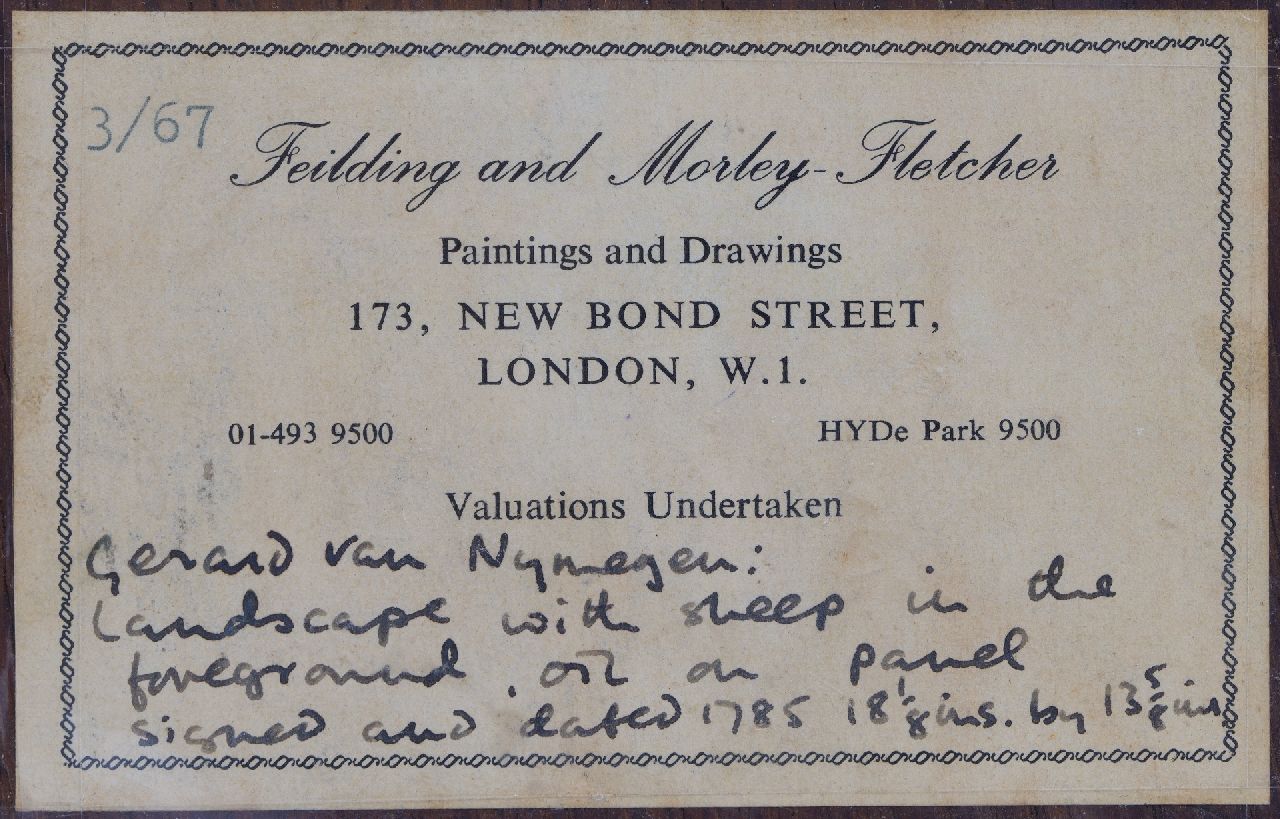 3/67
Feilding and Morley-Fletcher
Paintings and Drawings
173, NEW BOND STREET,
LONDON, W.1.
01-493 9500 HYDe Park 9500
Valuations Undertaken
Gerard van Nymegen:
Landscape with sheep in the
foreground, oil on panel
signed and dated 1785 18 1/8 ins. by 13 5/8 ins